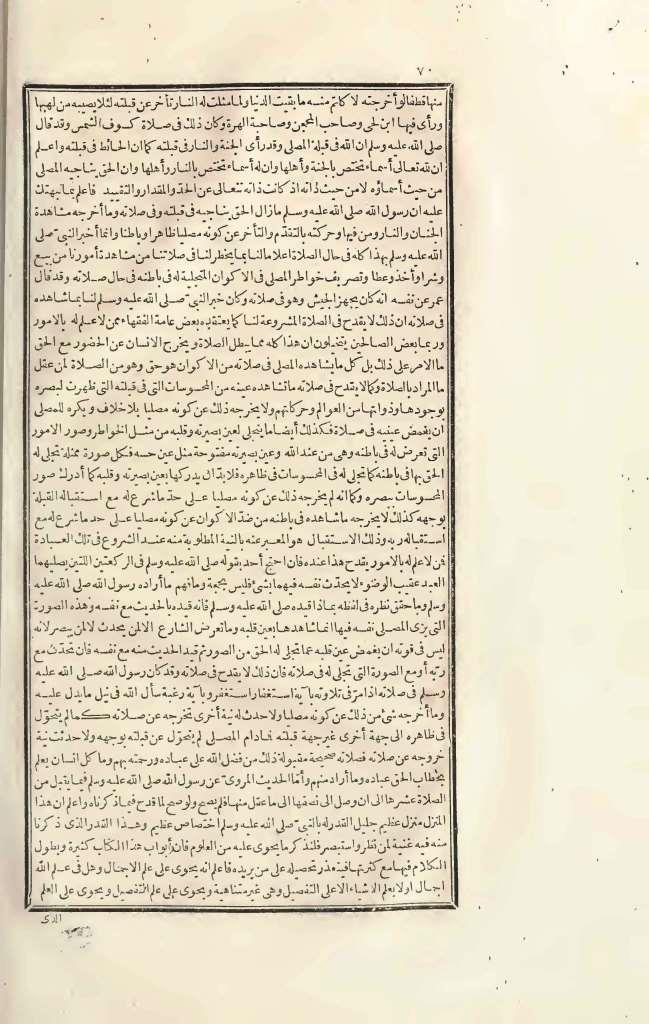 ٧٠
منها قطفا لو أخرجته لأكلتم منه ما بقيت الدنيا ولما مثلت له النار تأخر عن قبلته لئلا يصيبه من لهبها
ورأى فيها ابن لحى وصاحب المحجن وصاحبة الهرة وكان ذلك فى صلاة كسوف الشمس وقد قال
صلى الله عليه وسلم ان الله فى قبلة المصلى وقد رأى الجنة والنار فى قبلته كما ان الحائط فى قبلته واعلم
ان لله تعالى أسماء تختص بالجنة وأهلها وان له أسماء تختص بالنار وأهلها وان الحق يناجيه المصلى
من حيث أسماؤه لا من حيث ذاته اذ كانت ذاته تتعالى عن الحد والمقدار والتقييد فاعلم بما نبهتك
عليه ان رسول الله صلى الله عليه وسلم ما زال الحق يناجيه فى قبلته وفى صلاته وما أخرجه مشاهدة
الجنان والنار ومن فيها وحركته بالتقدم والتأخر عن كونه مصليا ظاهرا وباطنا وانما أخبر النبى صلى
الله عليه وسلم بهذا كله فى حال الصلاة اعلاما لنا بما يخطر لنا فى صلاتنا من مشاهدة أمورنا من بيع
وشرا وأخذ وعطا وتصريف خواطر المصلى فى الاكوان المتجلية له فى باطنه فى حال صلاته وقد قال
عمر عن نفسه انه كان يجهز الجيش وهو فى صلاته وكان خبر النبى صلى الله عليه وسلم لنا بما شاهده
فى صلاته ان ذلك لا يقدح فى الصلاة المشروعة لنا كما يعتقده بعض عامة الفقهاء ممن لا علم له بالامور
وربما بعض الصالحين يتخيلون ان هذا كله مما يبطل الصلاة ويخرج الانسان عن الحضور مع الحق
ما الامر على ذلك بل كل ما يشاهده المصلى فى صلاته من الاكوان هو حق وهو من الصلاة لمن عقل
ما المراد بالصلاة وكما لا يقدح فى صلاته ما تشاهده عينه من المحسوسات التى فى قبلته التى ظهرت لبصره
بوجودها وذواتها من العوالم وحركاتهم ولا يخرجه ذلك عن كونه مصليا بلا خلاف ويكره للمصلى
ان يغمض عينيه فى صلاة فكذلك أيضا ما يتجلى لعين بصيرته وقلبه من مثل الخواطر وصور الامور
التى تعرض له فى باطنه وهى من عند الله وعين بصيرته مفتوحة مثل عين حسه فكل صورة ممثلة تجلى له
الحق بها فى باطنه كما تجلى له فى المحسوسات فى ظاهره فلا بد ان يدركها بعين بصيرته وقلبه كما أدرك صور
المحسوسات ببصره وكما انه لم يخرجه ذلك عن كونه مصليا على حد ما شرع له مع استقباله القبلة
بوجهه كذلك لا يخرجه ما شاهده فى باطنه من صور الاكوان عن كونه مصليا على حد ما شرع له مع
استقباله ربه وذلك الاستقبال هو المعبر عنه بالنية المطلوبة منه عند الشروع فى تلك العبادة
فمن لا علم له بالامور يقدح هذا عنده فان احتج أحد بقوله صلى الله عليه وسلم فى الركعتين اللتين يصليهما
العبد عقيب الوضوء لا يحدث نفسه فيهما بشئ فليس بحجة وما فهم ما أراده رسول الله صلى الله عليه
وسلم وما حقق نظره فى لفظه بماذا قيده صلى الله عليه وسلم فانه قيده بالحديث مع نفسه وهذه الصورة
التى يرى المصلى نفسه فيها انما شاهدها بعين قلبه وما تعرض الشارع الا لمن يحدث لا لمن يبصر لانه
ليس فى قوته ان يغمض عين قلبه عما تجلى له الحق من الصور ثم قيد الحديث منه مع نفسه فان تحدث مع
ربه أو مع الصورة التى تتجلى له فى صلاته فان ذلك لا يقدح فى صلاته وقد كان رسول الله صلى الله عليه
وسلم فى صلاته اذا مر فى تلاوته بآية استغفار استغفر وبآية رغبة سأل الله فى نيل ما يدل عليه
وما أخرجه شئ من ذلك عن كونه مصليا ولا حدث له نية أخرى تخرجه عن صلاته كما لم يتحول
فى ظاهره الى جهة أخرى غير جهة قبلته فما دام المصلى لم يتحول عن قبلته بوجهه ولا حدثت نية
خروجه عن صلاته فصلاته صحيحة مقبولة ذلك من فضل الله على عباده ورحمته بهم وما كل انسان يعلم
بخطاب الحق عباده وما أراد منهم وأما الحديث المروى عن رسول الله صلى الله عليه وسلم فيما يقبل من
الصلاة عشرها الى ان وصل الى نصفها الى ما عقل منها فلم يصح ولو صح لما قدح فيما ذكرناه واعلم ان هذا
المنزل منزل عظيم جليل القدر له بالنبى صلى الله عليه وسلم اختصاص عظيم وهذا القدر الذى ذكرنا
منه فيه غنية لمن نظر واستبصر فلنذكر ما يحوى عليه من العلوم فان أبواب هذا الكتاب كثيرة ويطول
الكلام فيها مع كثرتها فيتعذر تحصيله على من يريده فاعلم انه يحوى على علم الاجمال وهل فى علم الله
اجمال أو لا يعلم الاشياء الا على التفصيل وهى غير متناهية ويحوى على علم التفصيل ويحوى على العلم
الذى